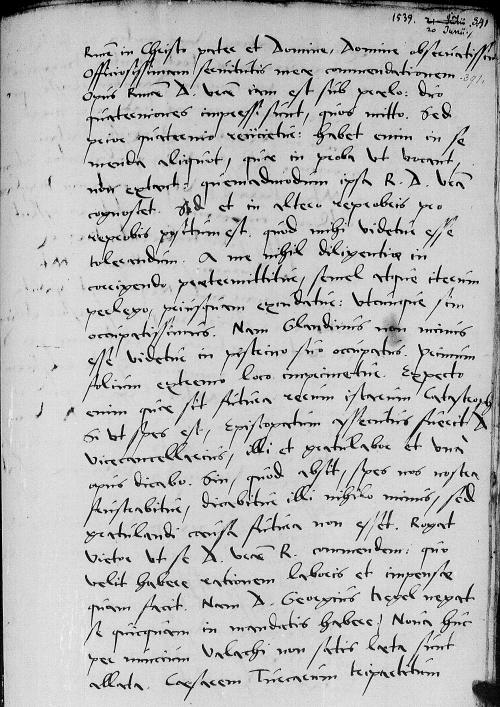 1539. 391
20 Junij
Rme in Christo pater et Domine, Domine observatissime
Officiosissimam servitutis meae commendationem
391.
Opus Rme D. Vrae iam est sub praelo: duo
quaterniones impressi sunt, quos mitto. Sed
prior quaternio reiicietur: habet enim in se
menda aliquot, quae in proba ut vocant,
non extant: quemadmodum ipsa R. D. Vra
cognoscet. Sed et in altero reprobeis pro
reprobis positum est, quod mihi videtur esse
tolerandum. A me nihil diligentiae in
corrigendo praetermittitur, semel atque iterum
perlego, priusquam excudatur: utcunque sim
occupatissimus. Nam Glandinus non minus
esse videtur in pistrino suo occupatus. Primum
folium extremo loco imprimetur. Expecto
enim quae sit futura rerum istarum Catastrophe
Si ut spes est, Episcopatum assecutus fuerit D
Vicecancellarius, illi et gratulabor et una
opus dicabo. Sin, quod absit, spes nos nostra
frustrabitur, dicabitur illi nihilo minus, sed
gratulandi causa futura non esset. Rogat
Vietor ut se D. Vrae R. commendem: quo
velit habere rationem laboris et impensae
quam facit. Nam D. Georgius negat
se quicquam in mandatis habere; Nova huc
per nuncium Valachi non satis laeta sunt
allata. Caesarem Turcarum tripartitum